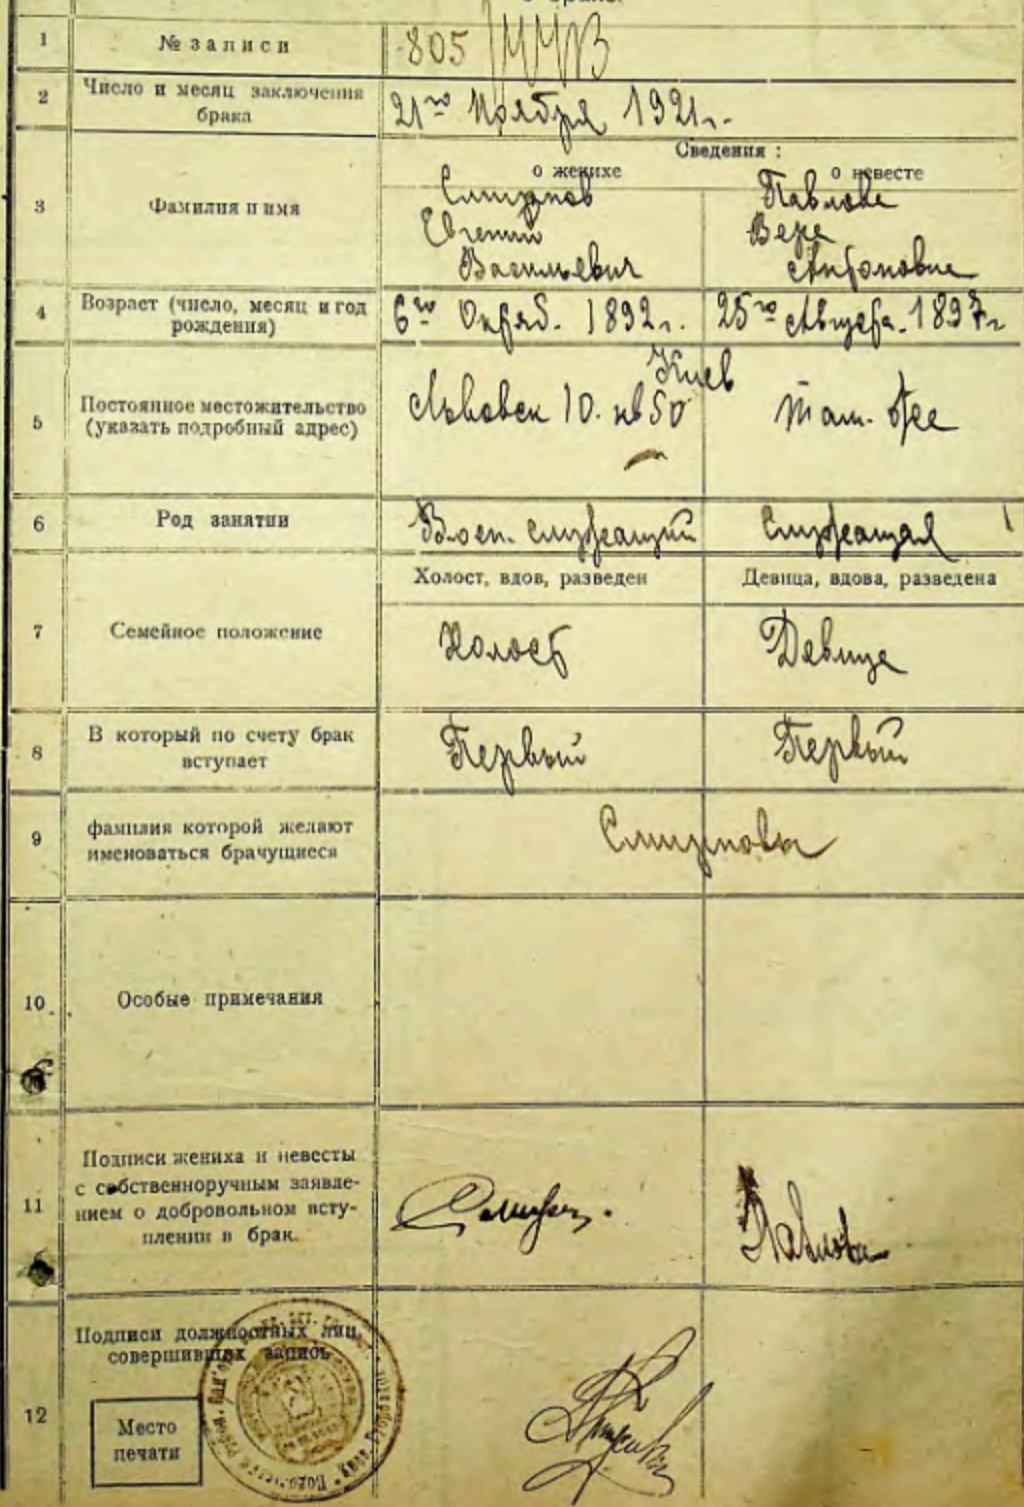 о браке.
1 № записи 805
2 Число и месяц заключения
брака
21го Ноября 1921г.
Сведения :
о женихе о невесте
3 Фамилия и имя
Смирнов
Евгений
Васильевич
Павлова
Вера
Антоновна
4 Возраст (число, месяц и год
рождения)
6го Октяб. 1892г. 25го Августа. 1897г
5 Постоянное местожительство
(указать подробный адрес)
Киев
Львовск 10. кв 50 Там-же
6 Род занятии Воен. служащий Служащая
Холост, вдов, разведен Девица, вдова, разведена
7 Семейное положение Холост Девица
8 В который по счету брак
вступает
Первый Первый
9 фамилия которой желают
именоваться брачущиеся
Смирновы
10 Особые примечания
11 Подписи жениха и невесты
с собственноручным заявле-
нием о добровольном всту-
плении в брак.
Павлова
12 Подписи должностных лиц,
совершивших запись
Место
печати